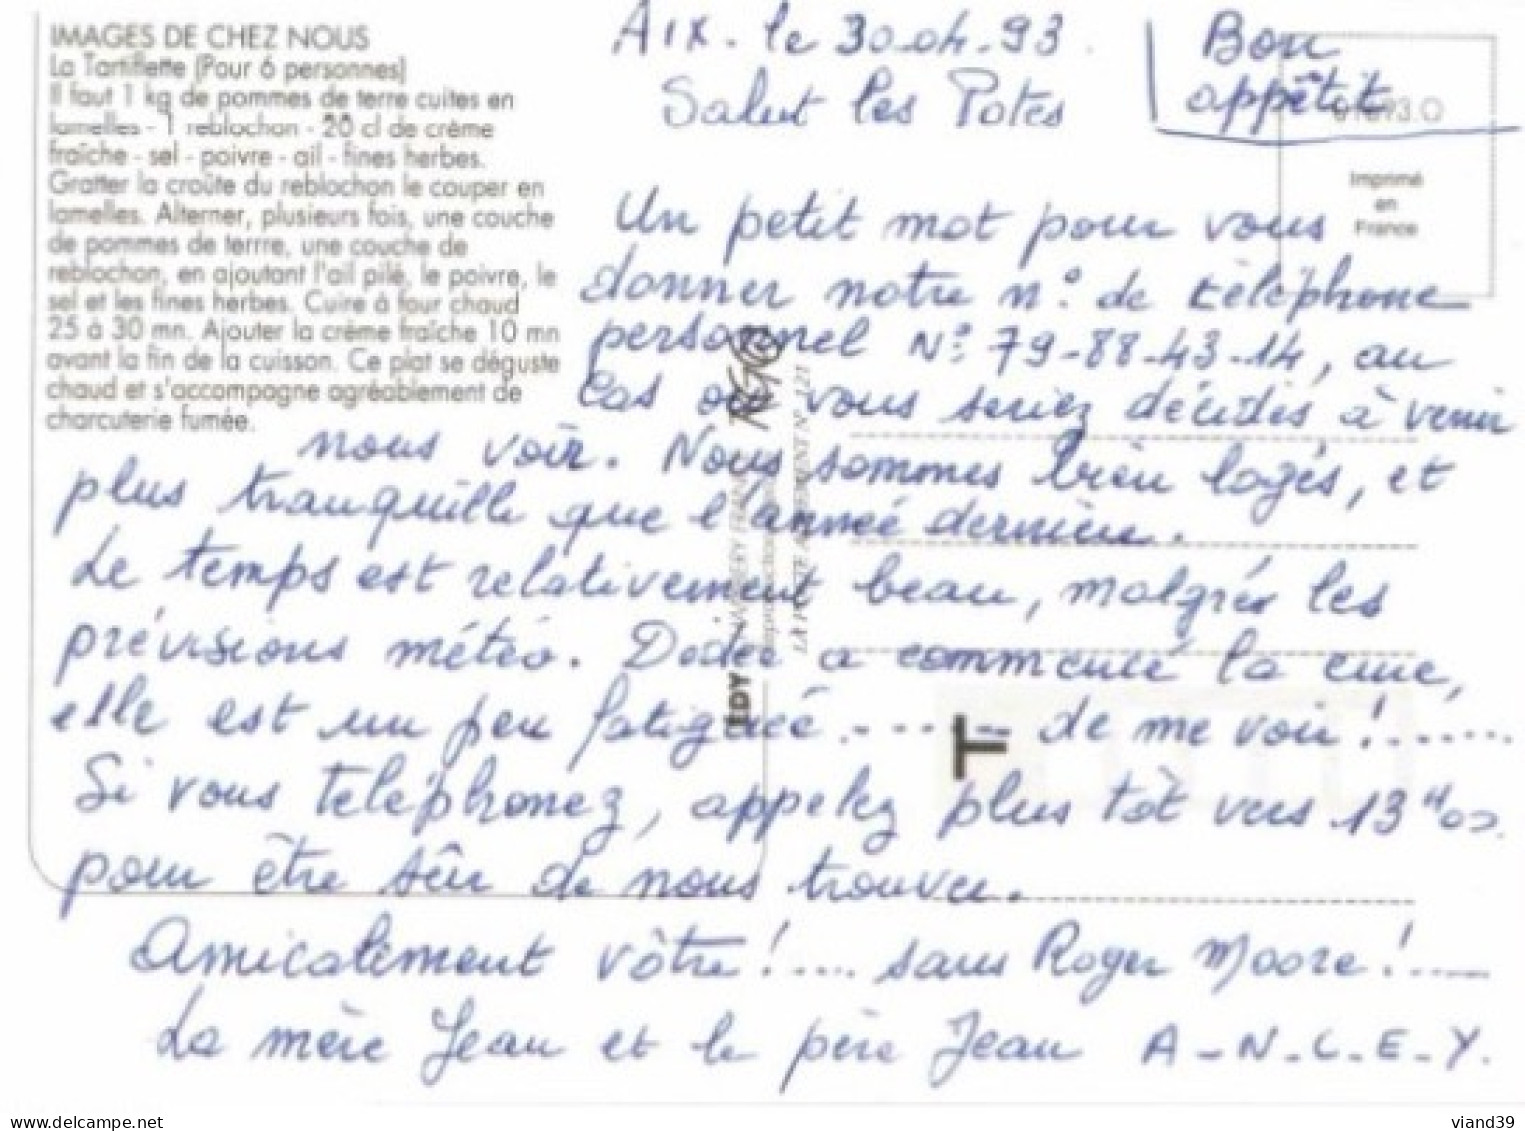 IMAGES DE CHEZ NOUS
La Tartiflette (Pour 6 personnes)
Il faut 1 kg de pommes de terre cuites en
lamelles - 1 reblochon - 20 cl de crème
fraîche - sel - poivre - ail - fines herbes.
Gratter la croûte du reblochon le couper en
lamelles. Alterner, plusieurs fois, une couche
de pommes de terrre, une couche de
reblochon, en ajoutant l'ail pilé, le poivre, le
sel et les fines herbes. Cuire à four chaud
25 à 30 mn. Ajouter la crème fraîche 10 mn
avant la fin de la cuisson. Ce plat se déguste
chaud et s'accompagne agréablement de
charcuterie fumée.
Aix. le 30.04.93.
Salut les Potes
Bon
appêtit
Imprimé
en
France
Un petit mot pour vous
donner notre n° de téléphone
personnel N° 79-88-43-14, au
cas où vous seriez décidés à venir
nous voir. Nous sommes bien logés, et
plus tranquille que l'année dernière.
Le temps est relativement beau, malgrés les
prévisions météo. Dédée a commencé la cure,
elle est un peu fatiguée ....... de me voir !......
Si vous téléphonez, appelez plus tôt vers 13 H 00.
pour être sûr de nous trouver.
Amicalement vôtre !.... sans Roger Moore !.....
La mère Jean et le père Jean A-N-C-E-Y.
EDY
T
viand39